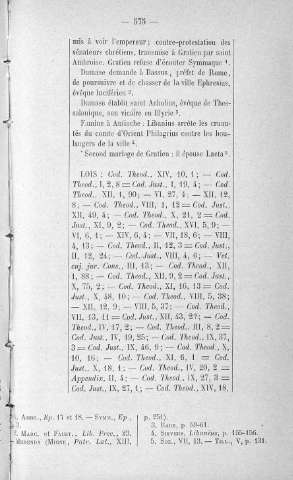 — 575 —
mis à voir l'empereur; contre-protestation des
sénateurs chrétiens, transmise à Gratien par saint
Ambroise. Gratien refuse d'écouter Symmaque 1.
Damase demande à Bassus, préfet de Rome,
de poursuivre et de chasser de la ville Ephresius,
évêque luciférien 2.
Damase établit saint Acholius, évêque de Thes-
salonique, son vicaire en Illyrie 3.
Famine à Antioche: Libanius arrête les cruau-
tés du comte d'Orient Philagrius contre les bou-
langers de la ville 4.
Second mariage de Gratien: il épouse Laeta 5.
LOIS: Cod. Theod., XIV, 10, 1; — Cod.
Theod., I, 2, 8 = Cod. Just., I, 19, 4; — Cod.
Theod., XII, 1, 90; — VI, 27, 4; — XII, 12,
8; — Cod. Theod., VIII, 1, 12 = Cod. Just.,
XII, 49, 4; — Cod. Theod., X, 21, 2 = Cod.
Just., XI, 9, 2; — Cod. Theod., XVI, 5, 9; —
VI, 6, 1; — XIV, 6, 4; — VII, 18, 6; — VIII,
4, 13; — Cod. Theod., II, 12, 3 = Cod. Just.,
II, 12, 24; — Cod. Just., VIII, 4, 6; — Vet.
cuj. jur. Cons., III, 13; — Cod. Theod., XII,
1, 88; — Cod. Theod., XII, 9, 2 = Cod. Just.,
X, 75, 2; — Cod. Theod., XI, 16, 13 = Cod.
Just., X, 48, 10; — Cod. Theod., VIII, 5, 38;
— XII, 12, 9; — VIII, 5, 37; — Cod. Theod.,
VII, 13, 11 = Cod. Just., XII, 43, 2?; — Cod.
Theod., IV, 17, 2; — Cod. Theod., III, 8, 2 =
Cod. Just., IV, 19, 25; — Cod. Theod., IX, 37,
3 = Cod. Just., IX, 46, 9; — Cod. Theod., X,
10, 16; — Cod. Theod., XI, 6, 1 = Cod.
Just., X, 48, 1; — Cod. Theod., IV, 20, 2 =
Appendix, II, 4; — Cod. Theod., IX, 27, 3 =
Cod. Just., IX, 27, 1; — Cod. Theod., XIV, 18,
Ambr., Ep. 17 et 18. — Symm., Ep.,
2. Marc. et Faust., Lib. Prec., 23.
(Migne, Patr. Lat., XIII,
p. 751).
3. Rade, p. 58-61.
4. Sievers, Libanius, p. 155-156.
5. Soz., VII, 13. — Till., V, p. 131.